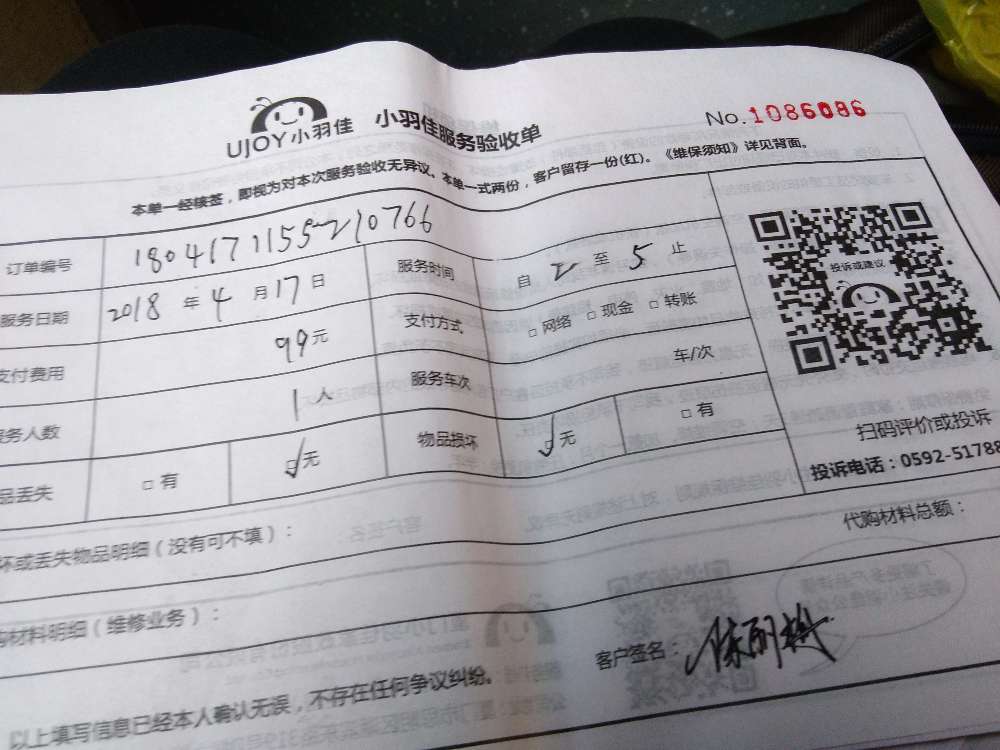 UJOY小羽佳 小羽佳服务验收单 No.1086086
本单一经核签，即视为对本次服务验收无异议。本单一式两份，客户留存一份(红)。《维保须知》详见背面。
订单编号 1804171155210766
服务日期 2018 年 4 月 17 日 服务时间 自 2 至 5 止
支付费用 99元 支付方式 □网络 □现金 □转账
服务人数 1人 服务车次 车/次
品丢失 □有 ☑无 物品损坏 ☑无 □有
投诉或建议
扫码评价或投诉
投诉电话：0592-51788
坏或丢失物品明细（没有可不填）：
代购材料总额：
购材料明细（维修业务）：
客户签名：
以上填写信息已经本人确认无误，不存在任何争议纠纷。